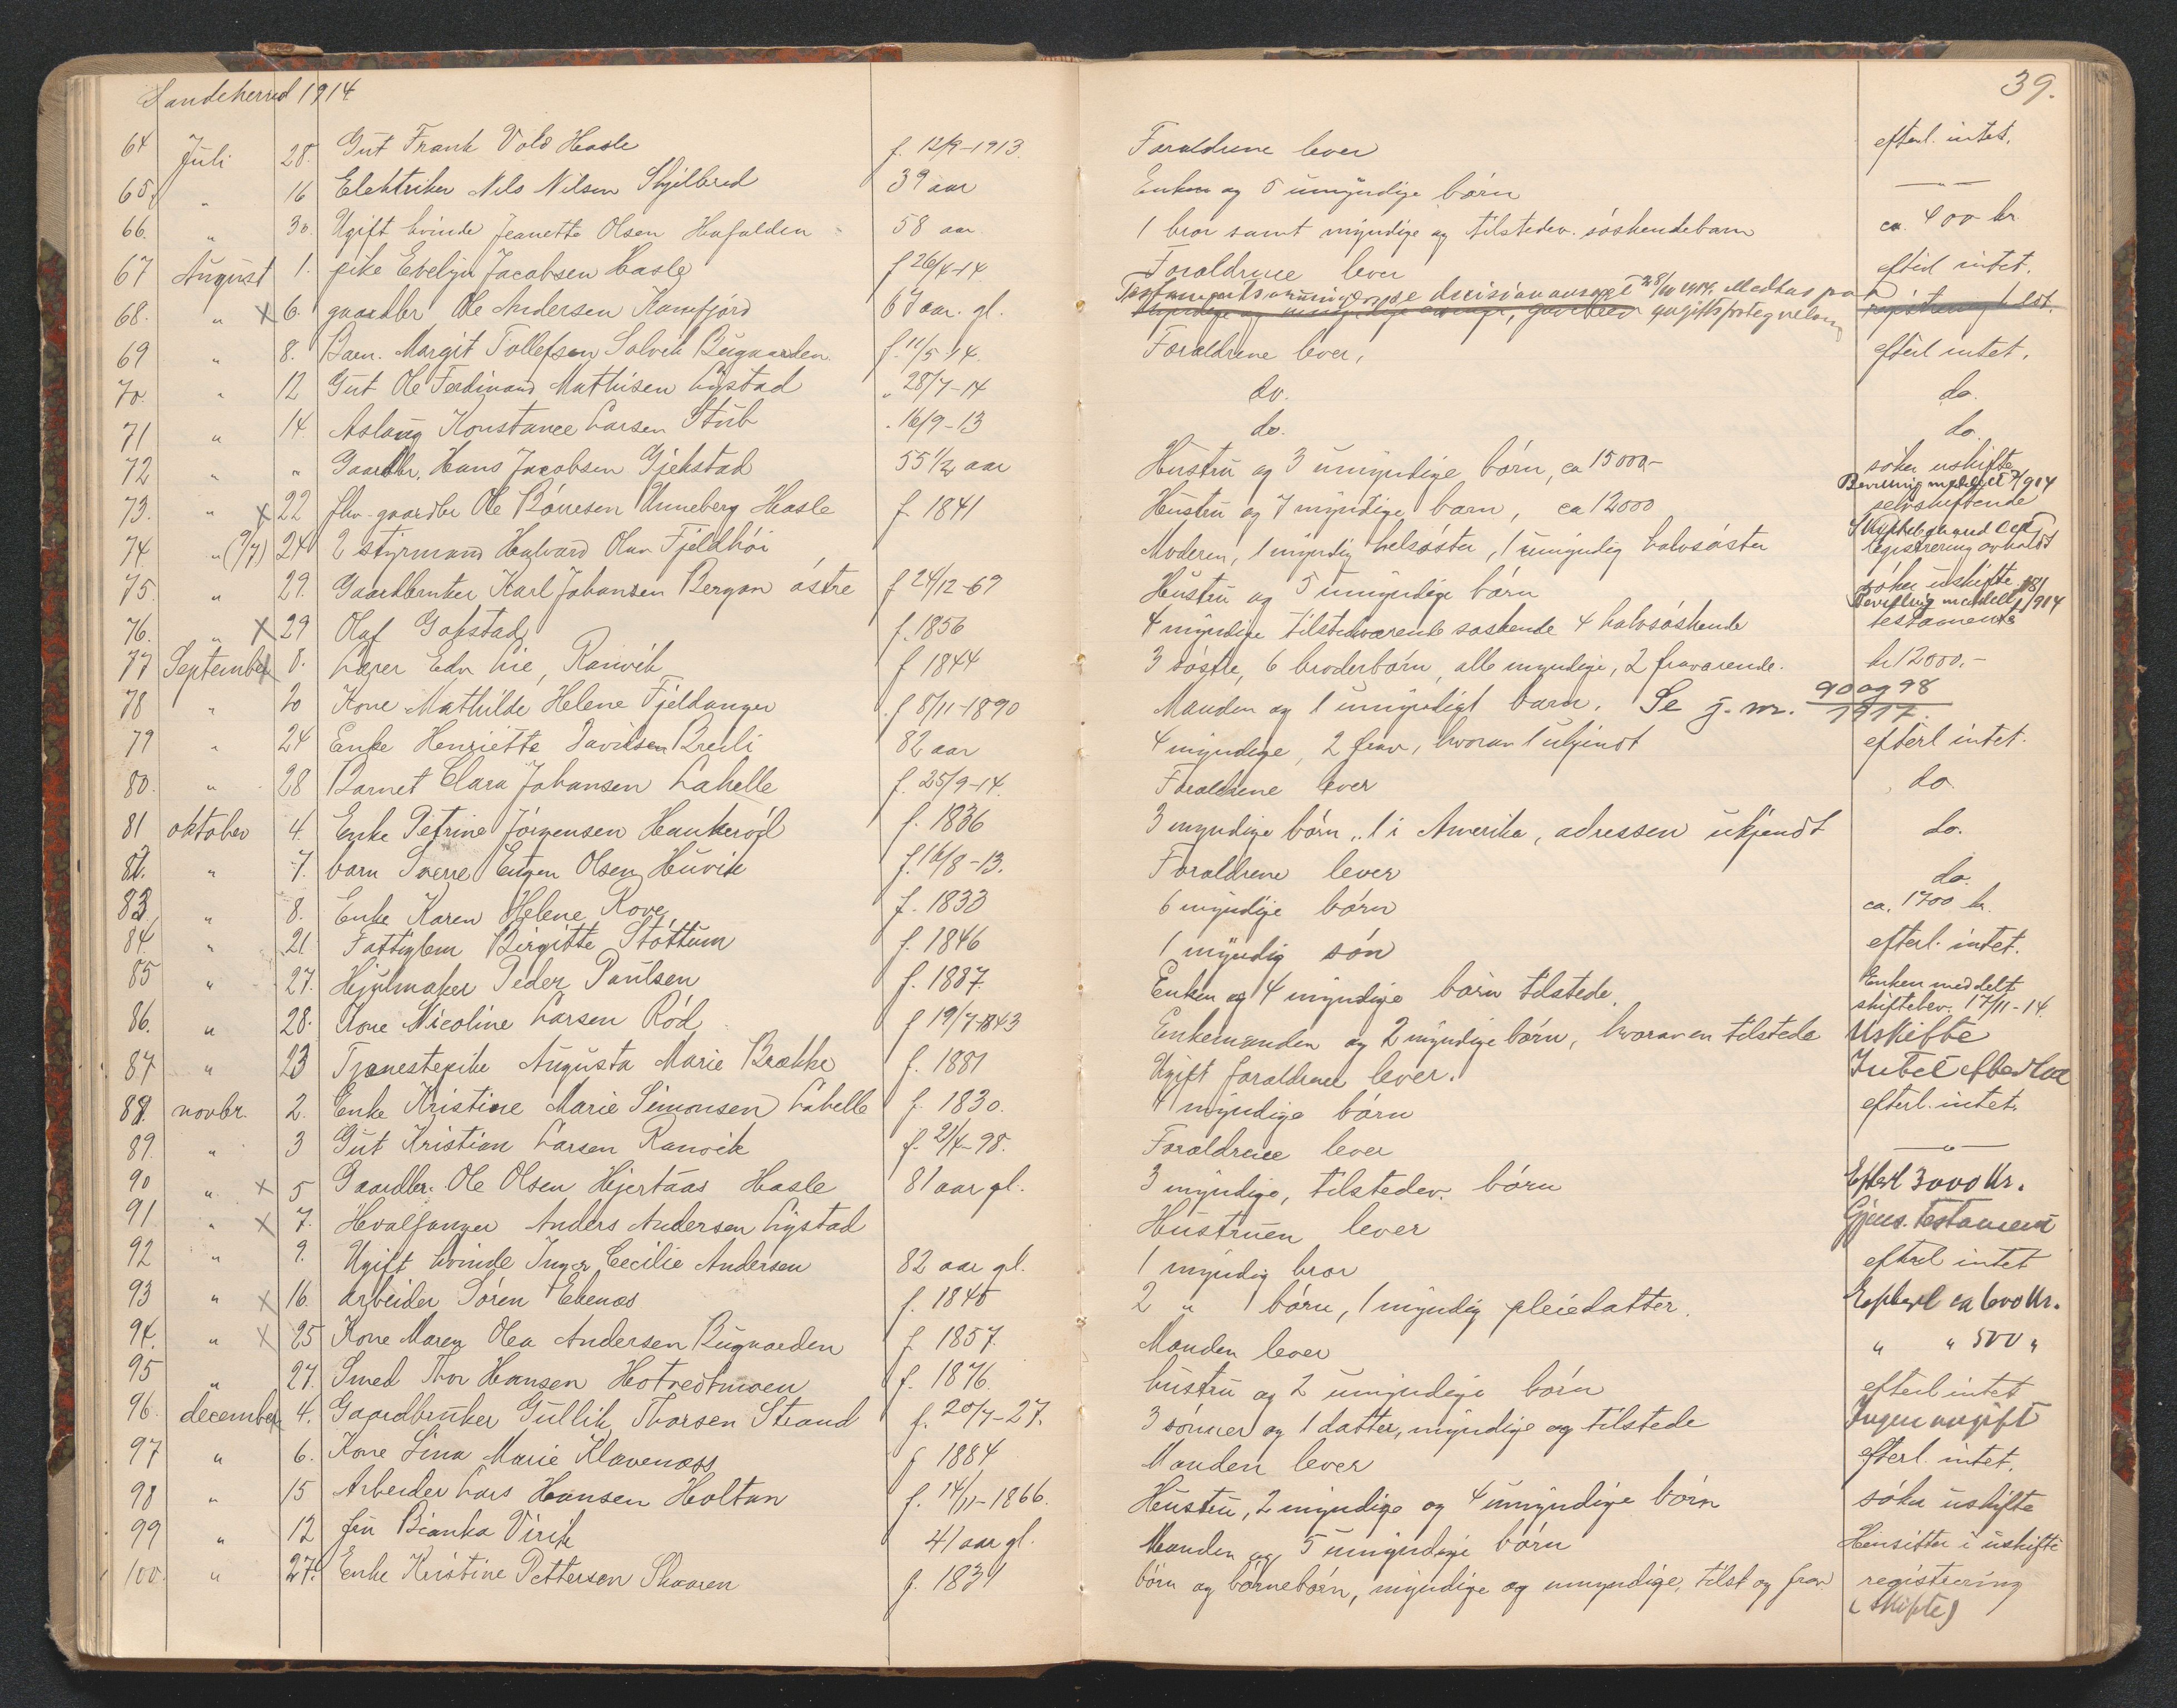 Sandeherred 1914
39.
64 Juli 28. Gut Frank Vold Hasle f. 12/9-1913. Forældrene lever efterl. intet.
65 " 16 Elektriker Nils Nilsen Skjilbred 39 aar Enken og 5 umyndige børn — " —
66. " 30. Ugift kvinde Jeanette Olsen 58 aar 1 bror samt myndige og tilstedev. søskendebarn ca. 400 kr
67 August 1. pike Evelyn Jacobsen Hasle f 26/4-14 Forældrene lever efterl intet.
68. " x 6. gaardbr Ole Andersen Kamfjord 67 aar. gl.
69 " 8. Barn. Margit Tollefsen Solvik Bugaarden f. 11/5-14. Forældrene lever, efterl intet.
70. " 12 Gut Ole Ferdinand Mathisen Lystad " 28/7-14 do. do.
71 " 14 Aslaug Konstance Larsen Stub " 16/9-13 do. do.
72 " " Gaardbr. Hans Jacobsen Gjekstad 55 1/2 aar Hustru og 3 umyndige børn, ca 15000,- søker uskifte
73. " x 22 fhv. gaardbr Ole Børresen Unneberg Hasle f. 1841 Hustru og 7 myndige børn, ca 12000 selvskiftende
74. " (9/7) 24 2 styrmand Halvard Olsen Fjeldhøi Moderen, 1 myndig helsøster, 1 umyndig halvsøster registrering avholdt
75. " 29. Gaardbruker Karl Johansen Bergan østre f 24/12-69 Hustru og 5 umyndige børn søker uskifte
76. " x 29 Olaf Gokstad f. 1856 4 myndige tilstedeværende søskende 4 halvsøskende testamente
77 September 8. Lærer Edv Lie, Ranvik f 1844 3 søstre, 6 broderbørn, alle myndige, 2 fraværende. kr 12000.-
78 " 20 Kone Mathilde Helene Fjeldanger f 8/11-1890 Manden og 1 umyndigt barn. Se j.nr. 90 og 98 / 1917.
79 " 24 Enke Henriette Davidsen Breili 82 aar 4 myndige, 2 frav, hvorav 1 ukjendt efterl intet.
80. " 28 Barnet Clara Johansen Lahelle f. 25/9-14. Forældrene lever do.
81 oktober 4. Enke Petrine Jørgensen Haukerød f. 1836 3 myndige børn, 1 i Amerika, adressen ukjendt do.
82. " 7. barn Sverre Eugen Olsen Huvik f. 16/8-13. Forældrene lever do.
83 " 8. Enke Karen Helene Rove f. 1833 6 myndige børn ca. 1700 kr.
84 " 21 Fattiglem Birgitte Støttum f. 1846 1 myndig søn efterl. intet.
85 " 27. Hjulmaker Peder Paulsen f. 1887. Enken og 4 myndige børn tilstede. Enken meddelt
skiftebev. 17/11-14.
86. " 28. Kone Nicoline Larsen Rød f 19/7-1843 Enkemanden og 2 myndige børn, hvorav en tilstede Uskifte
87 " 23 Tjenestepike Augusta Marie Brække f. 1881 Ugift forældrene lever. Intet efterlat
88. novbr. 2. Enke Kristine Marie Simonsen Lahelle f. 1830. 4 myndige børn efterl. intet.
89. " 3 Gut Kristian Larsen Ranvik f. 21/4-98. Forældrene lever — " —
90 " x 5 Gaardbr. Ole Olsen Hjertaas Hasle 81 aar gl. 3 myndige, tilstedev. børn Efterl 3000 kr.
91 " x 7. Hvalfanger Anders Andersen Lystad Hustruen lever Gjens. testament
92 " 9. Ugift kvinde Inger Cecilie Andersen 82 aar gl. 1 myndig bror efterl intet
93 " x 16. Arbeider Søren Ekenæs f. 1845 2 " børn, 1 myndig pleiedatter. Efterl ca 600 kr.
94. " x 25 Kone Maren Olea Andersen Bugaarden f 1857. Manden lever " " 500 "
95 " 27. Smed Thor Hansen Hotvedtmoen f. 1876. hustru og 2 umyndige børn efterl intet
96. december 4. Gaardbruker Gullik Thorsen Strand f. 20/7-27. 3 sønner og 1 datter, myndige og tilstede Ingen avgift
97 " 6. Kone Lina Marie Klavenæss f 1884 Manden lever efterl. intet.
98 " 15 Arbeider Lars Hansen Holtan f. 14/11-1866. Hustru, 2 myndige og 4 umyndige børn søker uskifte
99 " 12 fru Bianka Virik 41 aar gl. Manden og 5 umyndige børn Hensitter i uskifte
100. " 27. Enke Kristine Pettersen Skaaren f. 1831 børn og børnebørn, myndige og umyndige, tilst og frav registrering
(skifte)